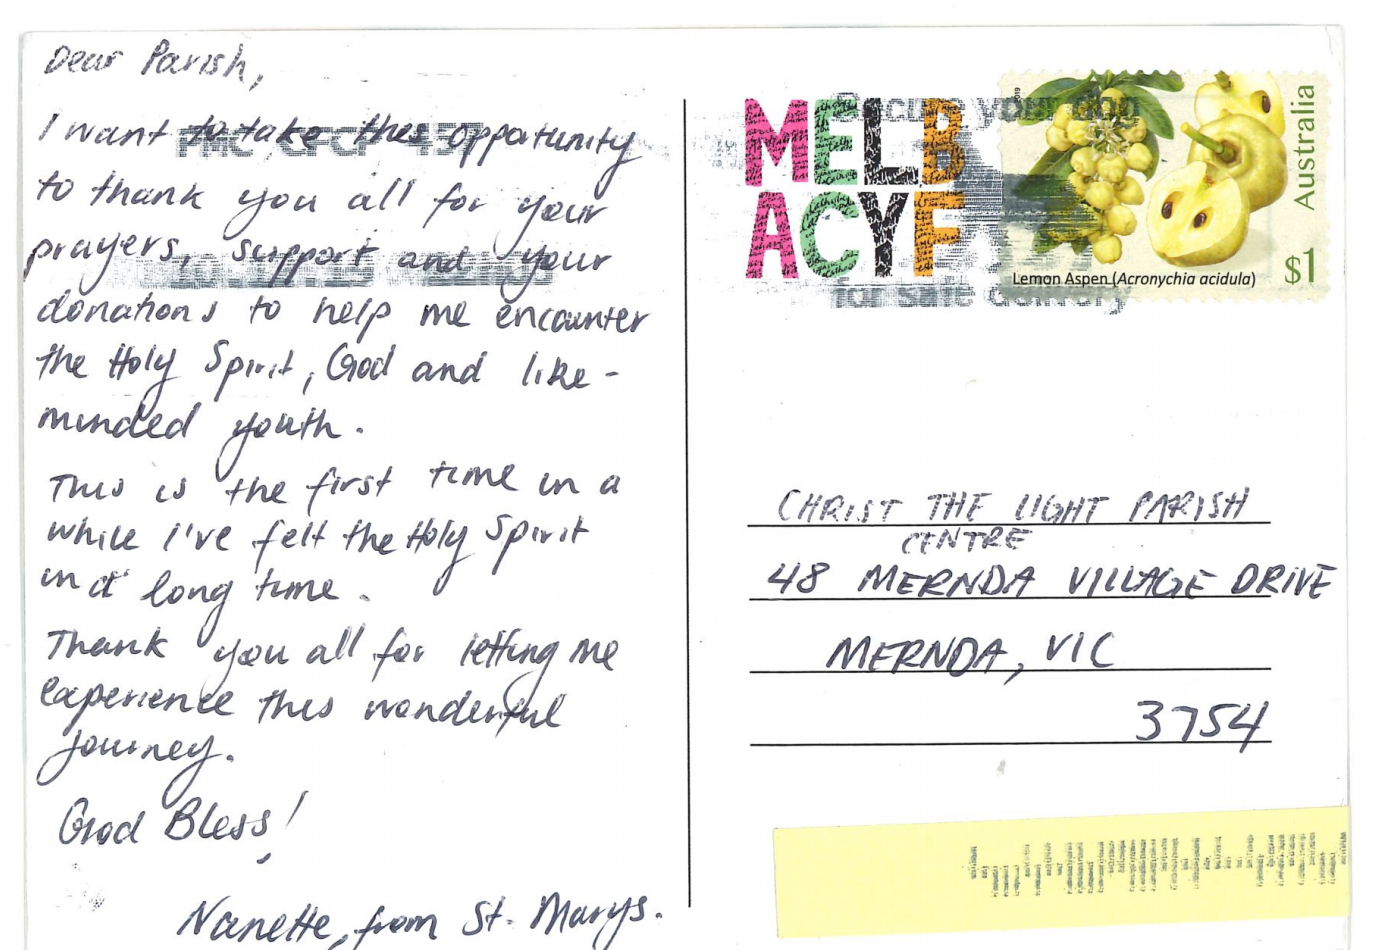 Dear Parish,
I want to take this opportunity
to thank you all for your
prayers, support and your
donations to help me encounter
the Holy Spirit, God and like-
minded youth.
This is the first time in a
while I've felt the Holy Spirit
in a long time.
Thank you all for letting me
experience this wonderful
journey.
God Bless!
Nanette, from St. Marys.
MELB
ACYF
Secure your dog
for safe delivery
2019
Australia
$1
Lemon Aspen (Acronychia acidula)
CHRIST THE LIGHT PARISH
CENTRE
48 MERNDA VILLAGE DRIVE
MERNDA, VIC
3754